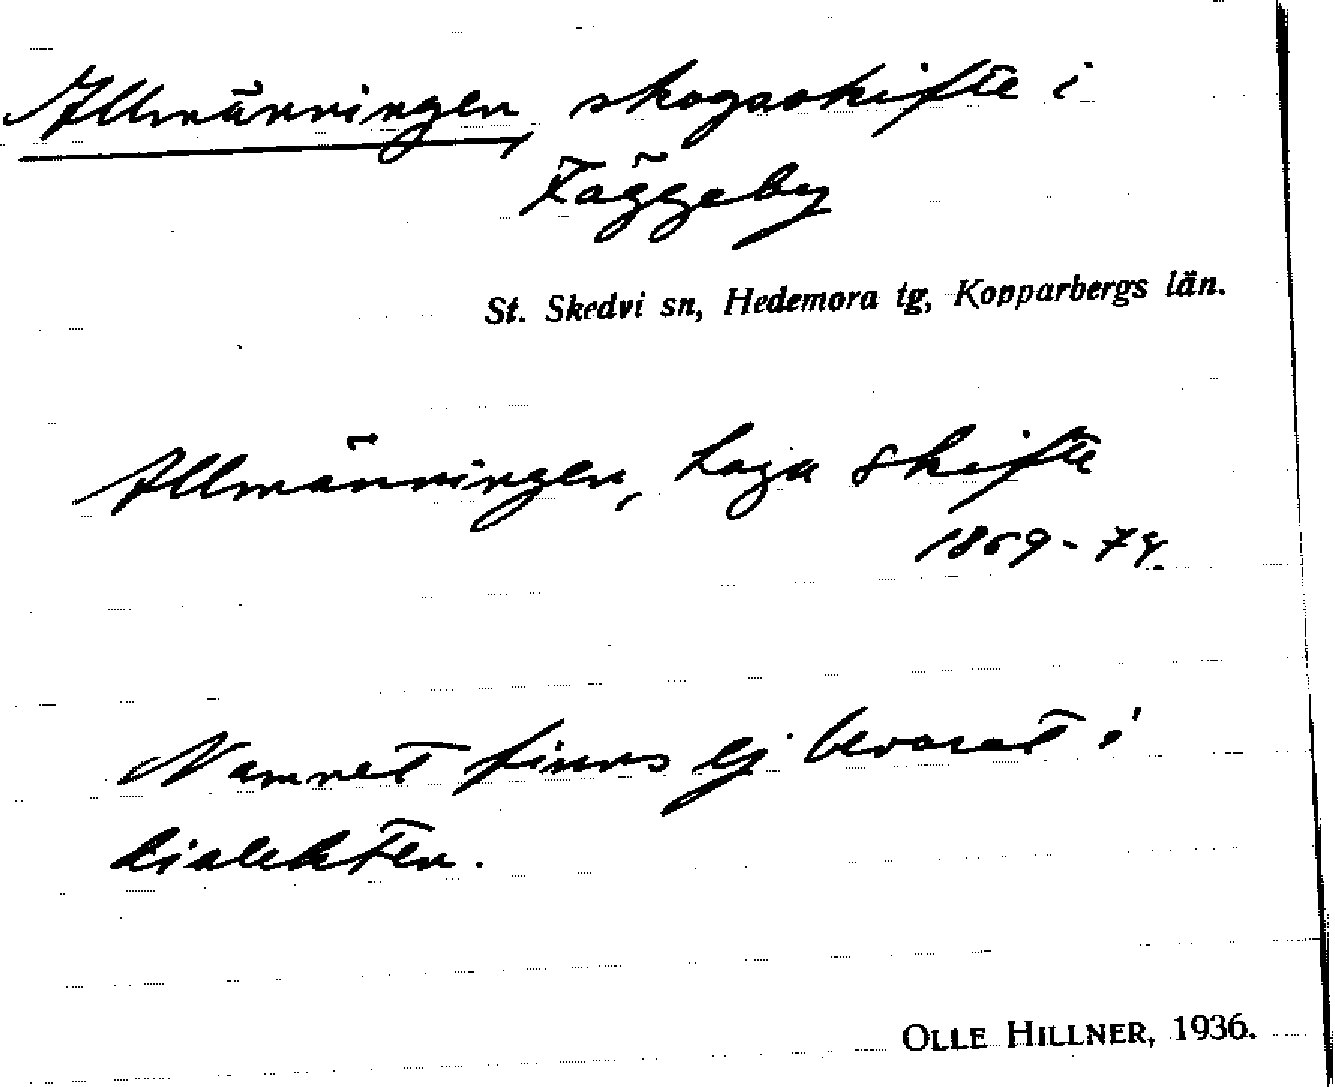 Allmänningen, skogsskifte i
Fäggeby
St. Skedvi sn, Hedemora tg, Kopparbergs län.
Allmänningen, Laga skifte
1869-74.
Namnet finns ej bevarat i
dialekten.
OLLE HILLNER, 1936.